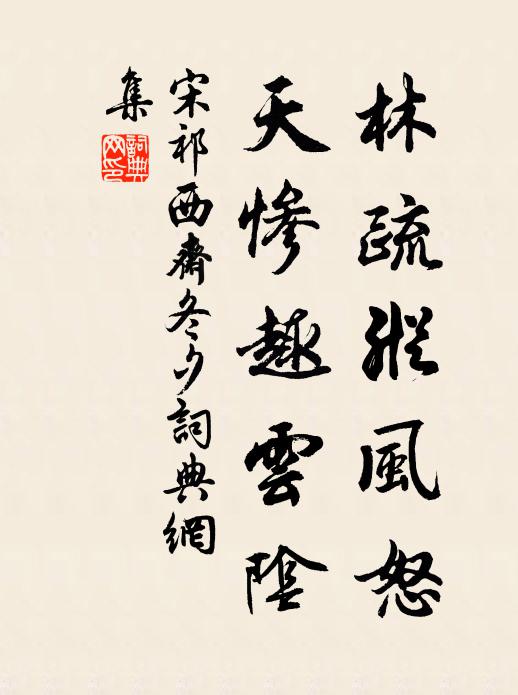 林疏縱風怒
天慘趣雲陰
宋祁西齋冬夕詞典網
集
詞典網印